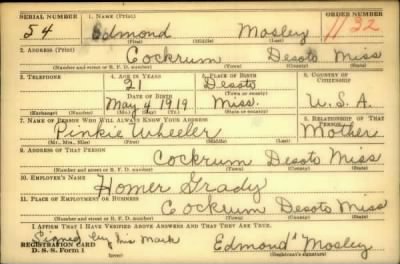 SERIAL NUMBER 1. NAME (Print) ORDER NUMBER
54 Edmond Mosley 1132
(First) (Middle) (Last)
2. ADDRESS (Print)
Cockrum Desoto Miss
(Number and street or R. F. D. number) (Town) (County) (State)
3. TELEPHONE 4. AGE IN YEARS 5. PLACE OF BIRTH 6. COUNTRY OF CITIZENSHIP
21 Desoto
DATE OF BIRTH (Town or county)
May 4 1919 Miss. U.S.A.
(Exchange) (Number) (Mo.) (Day) (Yr.) (State or country)
7. NAME OF PERSON WHO WILL ALWAYS KNOW YOUR ADDRESS 8. RELATIONSHIP OF THAT PERSON
Pinkie Wheeler Mother
(Mr., Mrs., Miss) (First) (Middle) (Last)
9. ADDRESS OF THAT PERSON
Cockrum Desoto Miss
(Number and street or R. F. D. number) (Town) (County) (State)
10. EMPLOYER'S NAME
Homer Grady
11. PLACE OF EMPLOYMENT OR BUSINESS
Cockrum Desoto Miss
(Number and street or R. F. D. number) (Town) (County) (State)
I AFFIRM THAT I HAVE VERIFIED ABOVE ANSWERS AND THAT THEY ARE TRUE.
Signed by his Mark
REGISTRATION CARD
D. S. S. Form 1 Edmond Mosley
(Registrant's signature)